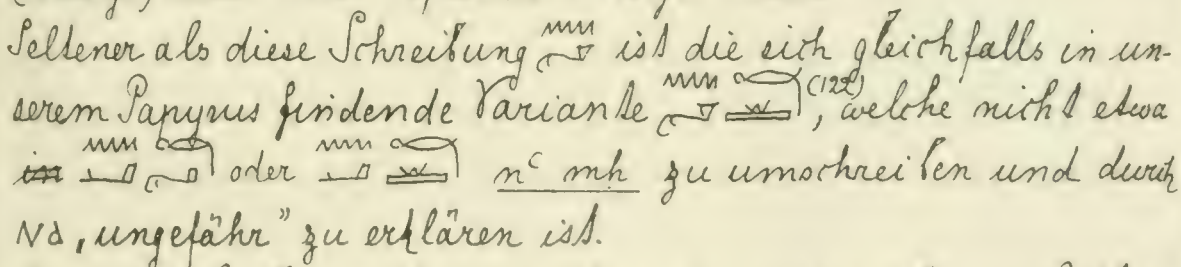 Seltener als diese Schreibung ist die sich gleichfalls in un-
serem Papyrus findende Variante (122), welche nicht etwa
oder nᶜ mh zu umschreiben und durch
Nα „ungefähr" zu erklären ist.